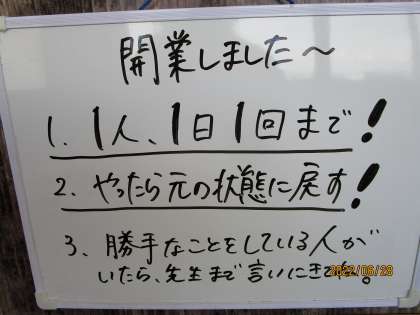 開業しました～
1. 1人、1日1回まで!
2. やったら元の状態に戻す!
3. 勝手なことをしている人が
いたら、先生まで言いにきてね。
2022/06/28